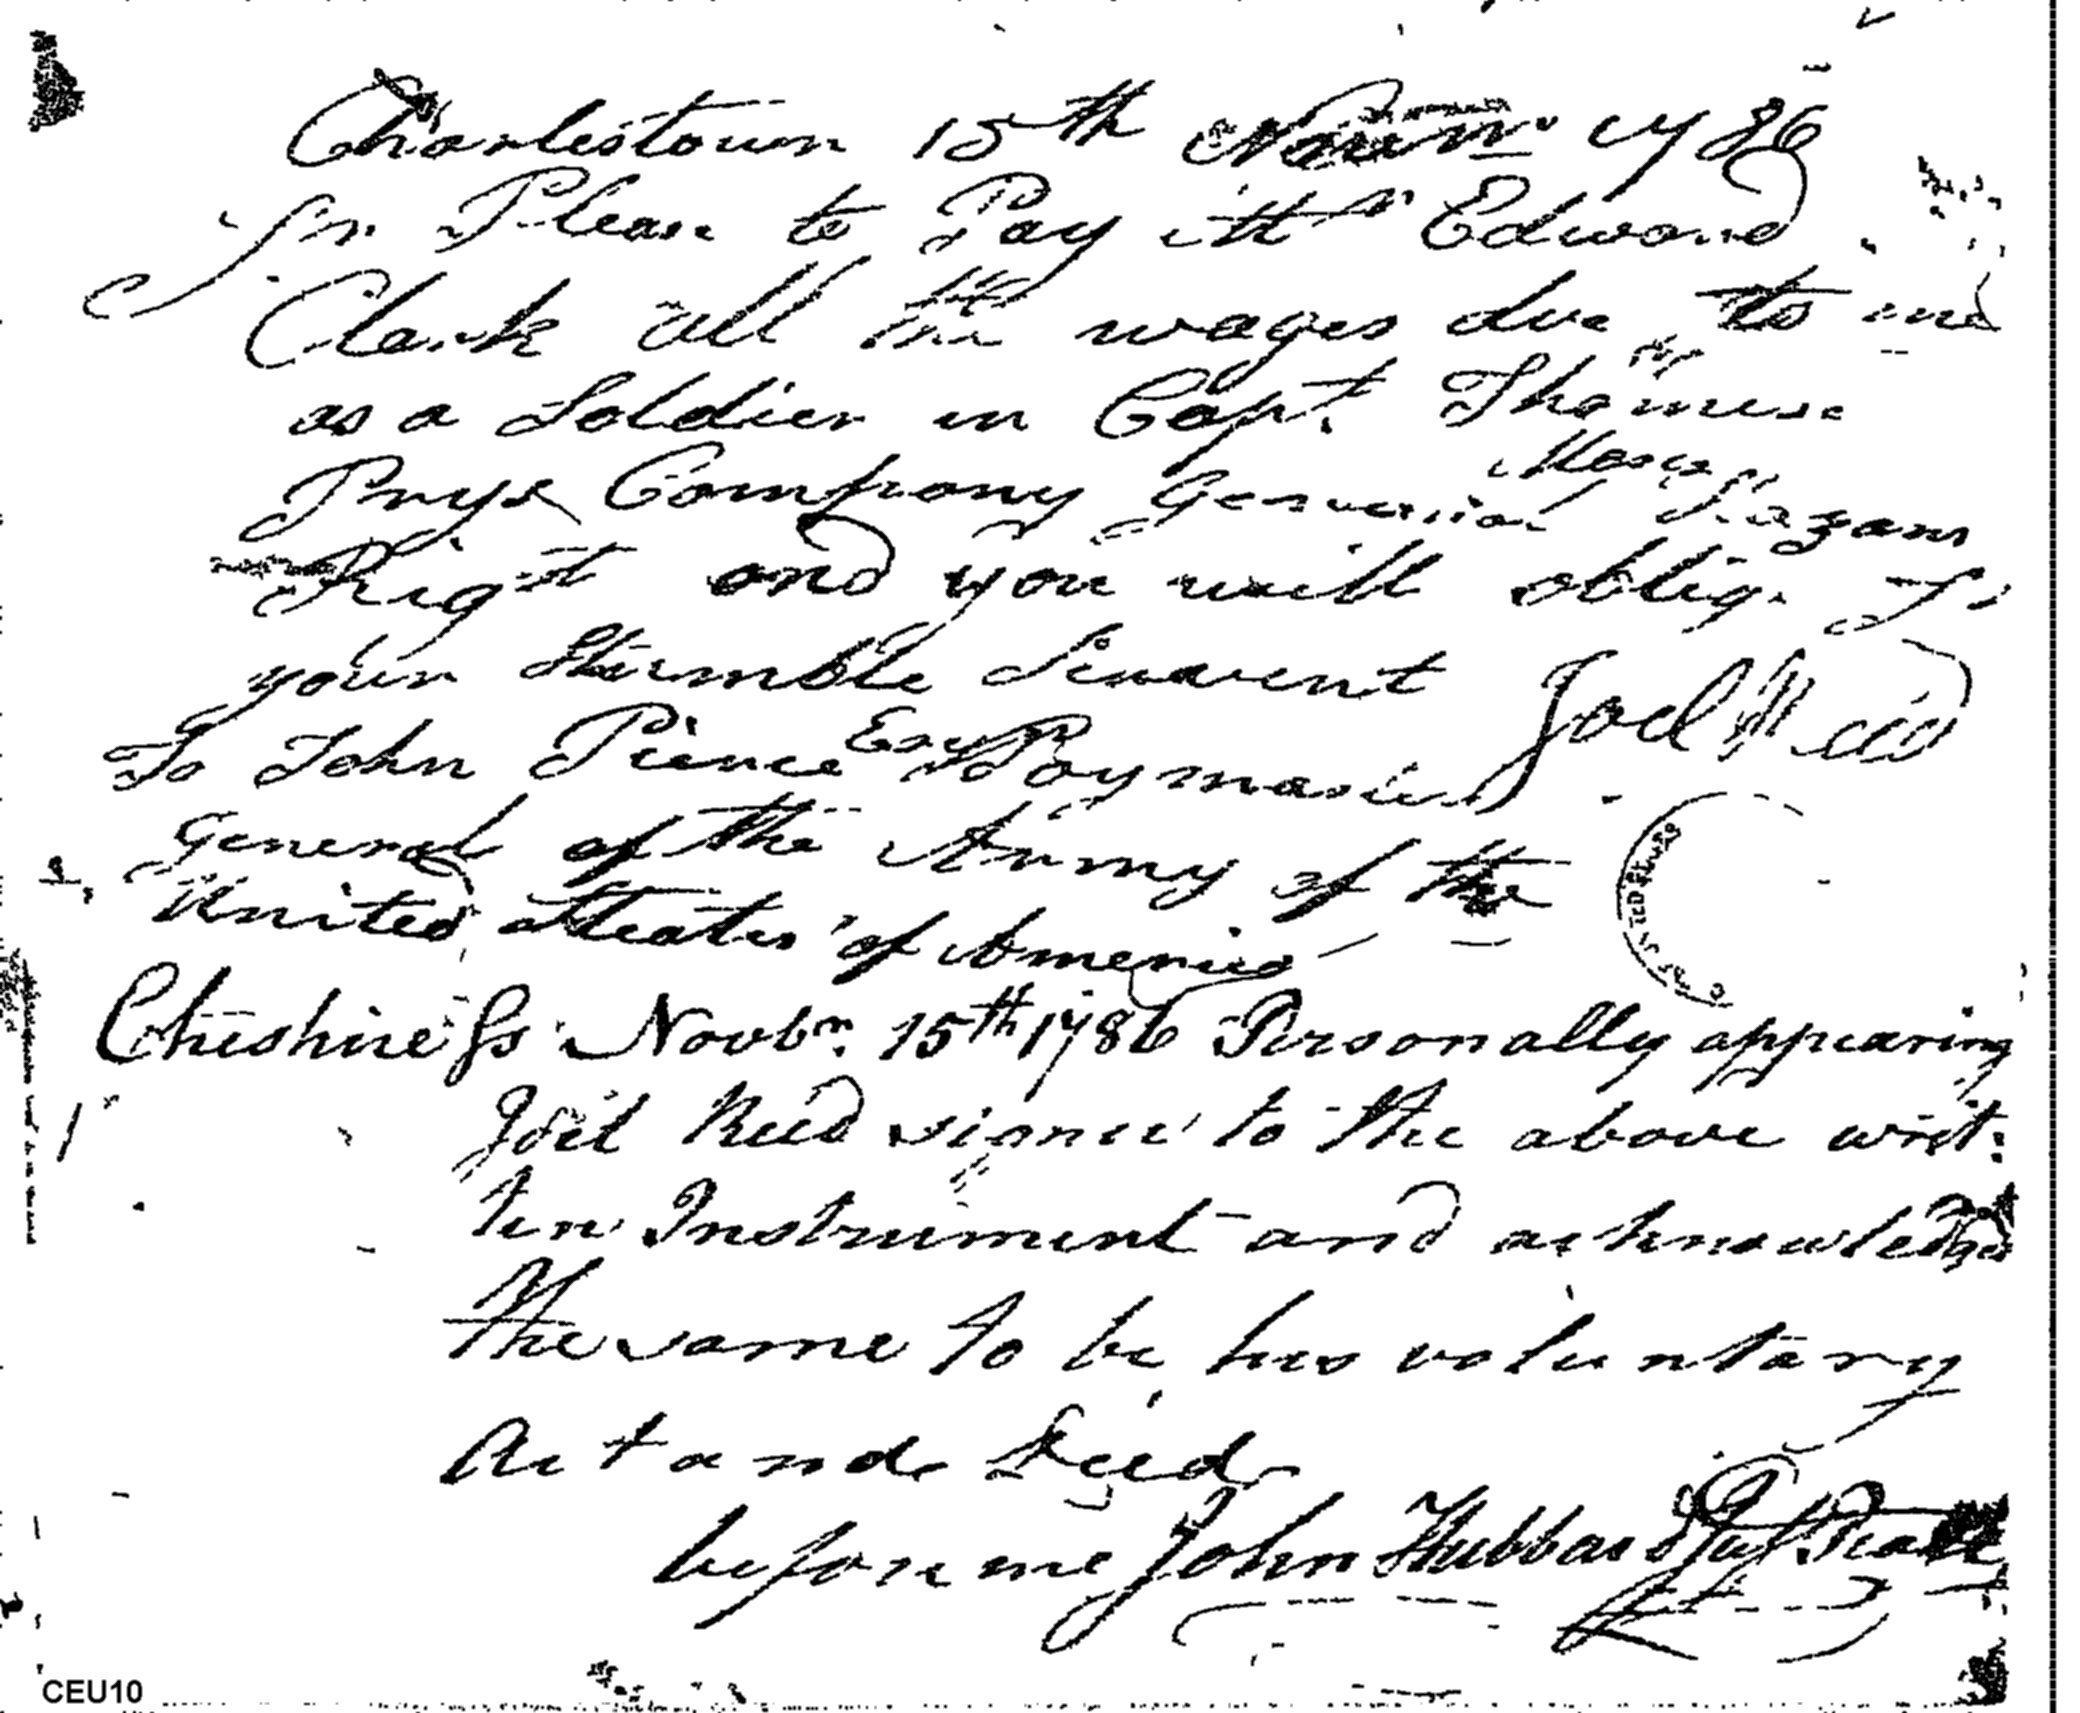 Charlestown 15th Novm 1786
Sr Please to Pay Mr Edward
Clark all the wages due to me
as a Soldier in Capt. Thomas
Prys Company General Moses Hazans
Rigt and you will oblige Sr
your Humble Servent Joel Reed
To John Pierce Esqr Paymaster
General of the Army of the
United Steates of America
Cheshire Ss Novbr. 15th 1786 Personally appearing
Joel Reed signer to the above writ:
ten Instrument and acknowledged
the same to be his voluntary
Act and Deed
before me John Hubbard
CEU10